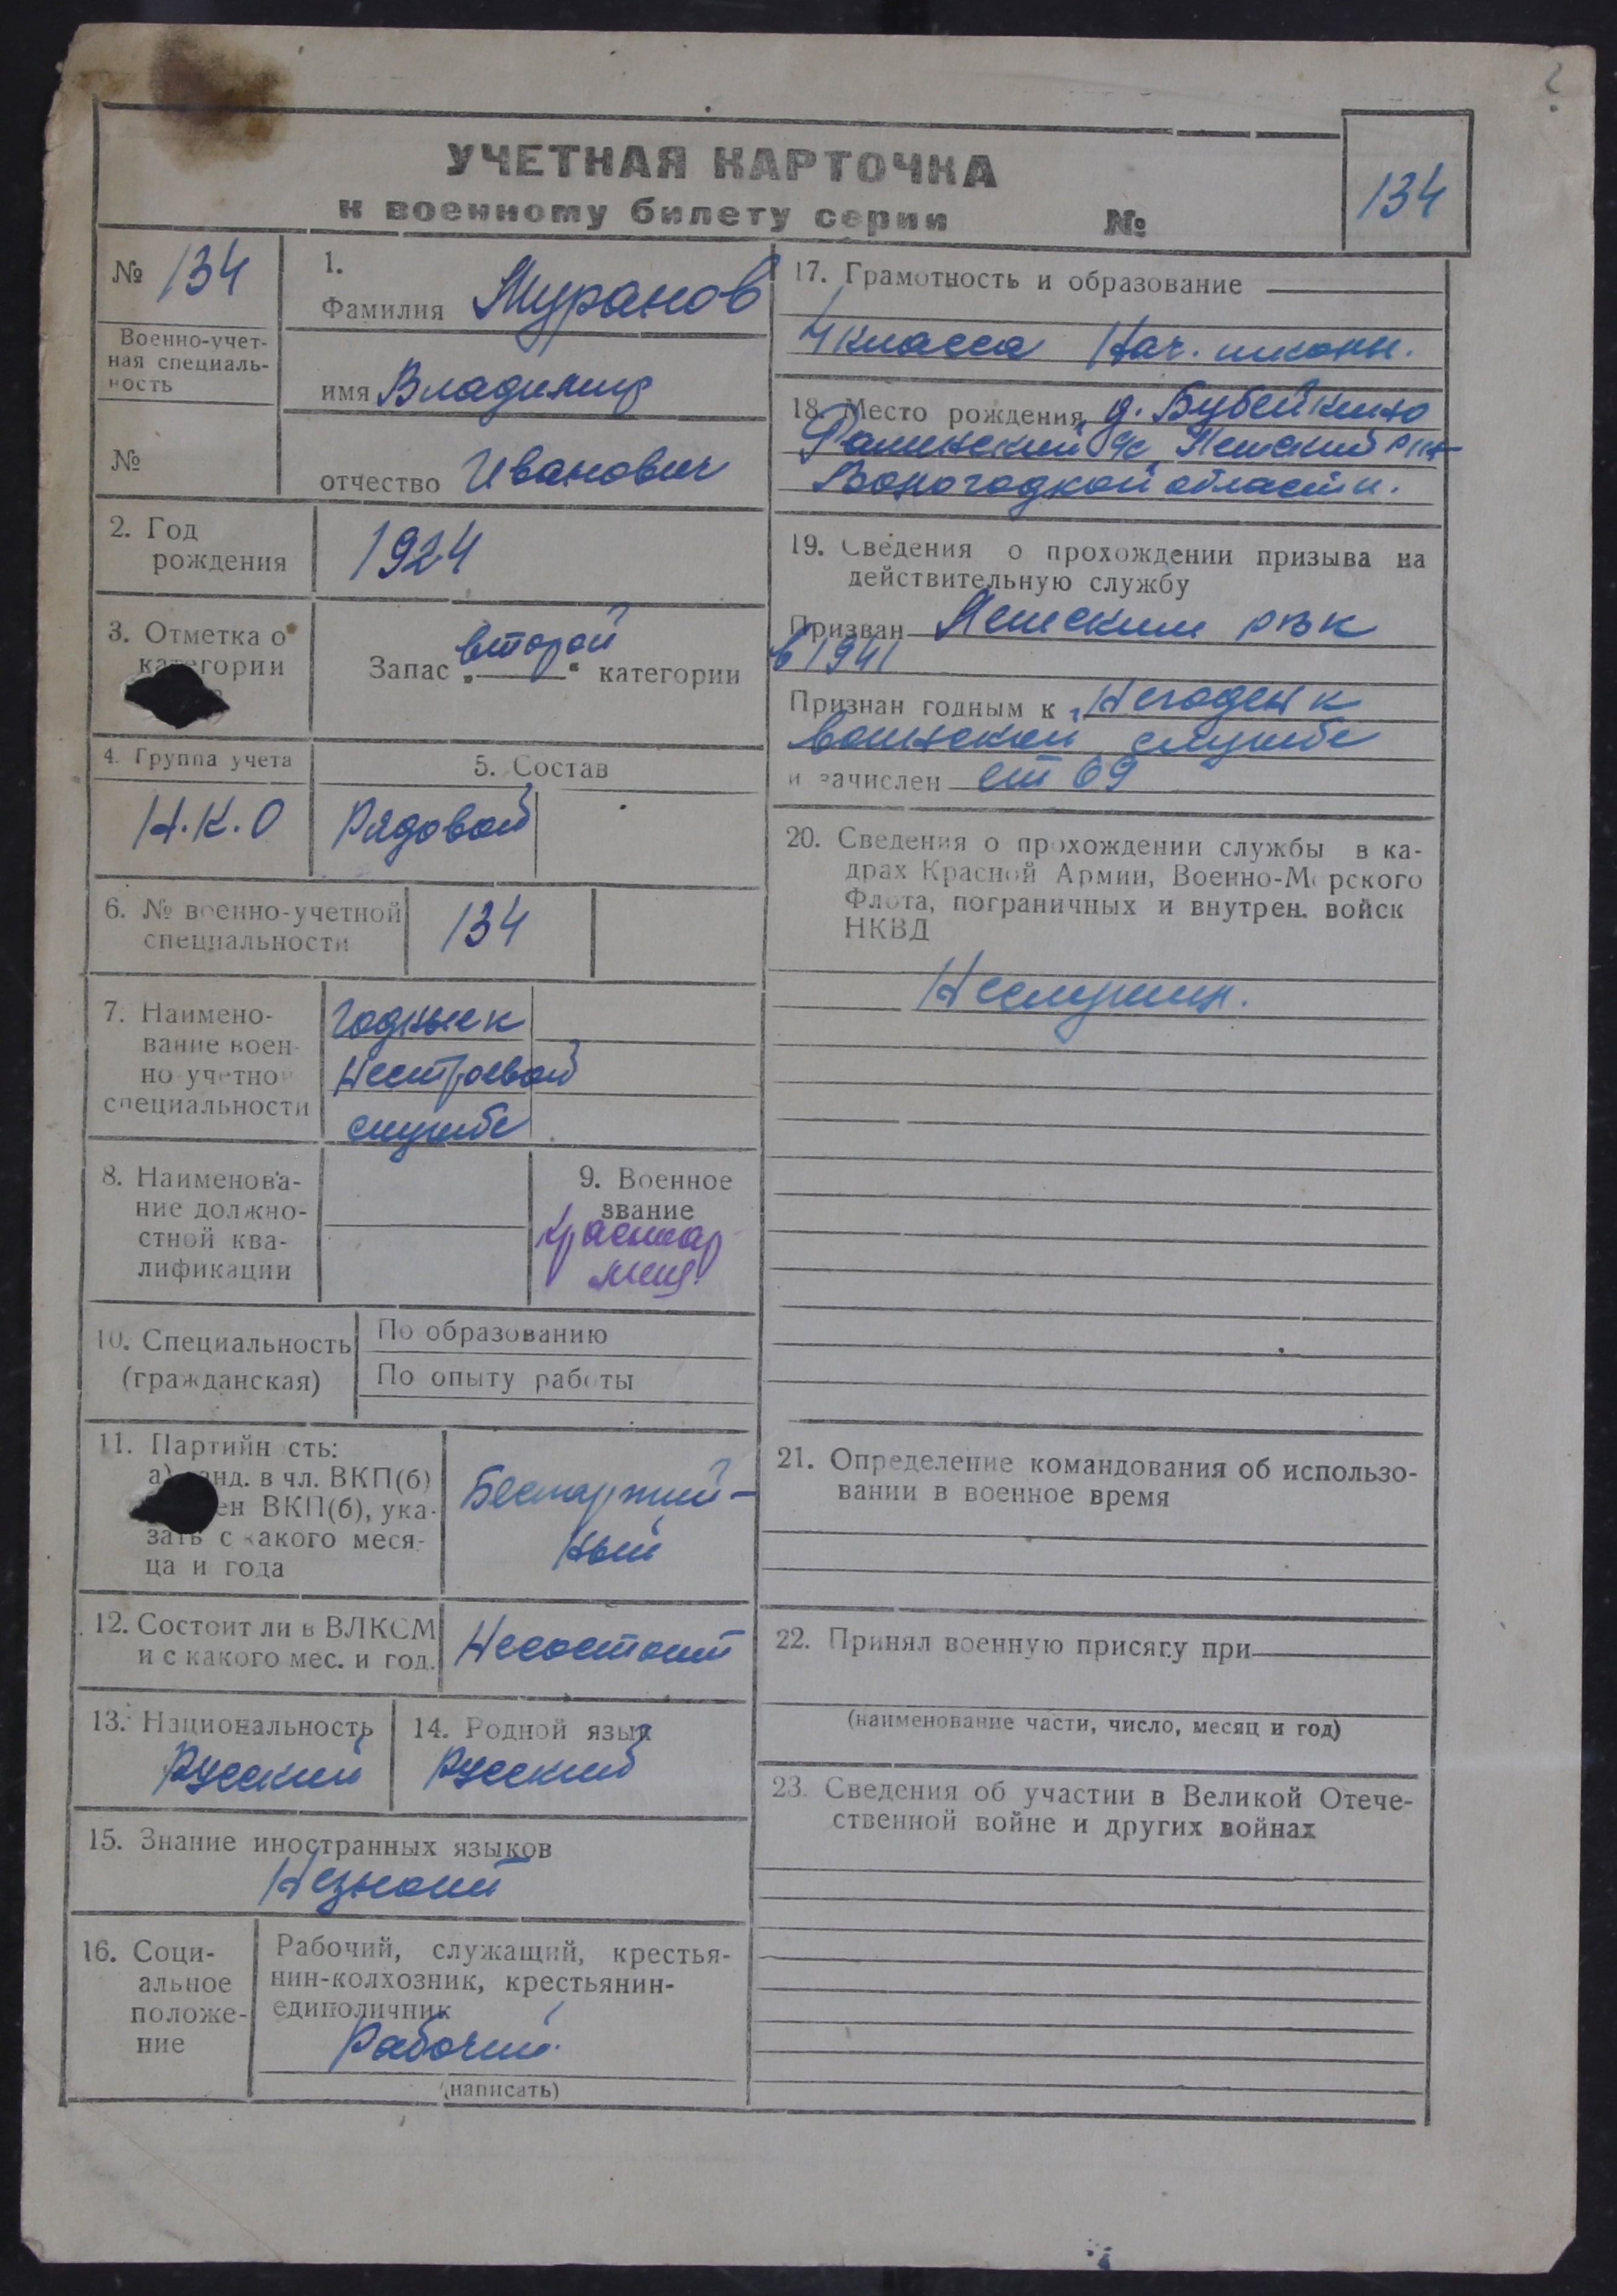 УЧЕТНАЯ КАРТОЧКА
к военному билету серии №
134
№ 134
Военно-учет-
ная специаль-
ность
№
1.
Фамилия Муранов
имя Владимир
отчество Иванович
2. Год
рождения
1924
3. Отметка о
категории
Запас „второй“ категории
4. Группа учета
Н.К.О
5. Состав
Рядовой
6. № военно-учетной
специальности
134
7. Наимено-
вание воен-
но-учетной
специальности
Годные к
нестроевой
службе
8. Наименова-
ние должно-
стной ква-
лификации
9. Военное
звание
Красноар
меец.
10. Специальность
(гражданская)
По образованию
По опыту работы
11. Партийность:
а) канд. в чл. ВКП(б)
ен ВКП(б), ука-
зать с какого меся-
ца и года
Беспартий-
ный
12. Состоит ли в ВЛКСМ
и с какого мес. и год.
Несостоит
13. Национальность
Русский
14. Родной язык
Русский
15. Знание иностранных языков
Незнает
16. Соци-
альное
положе-
ние
Рабочий, служащий, крестья-
нин-колхозник, крестьянин-
единоличник
Рабочий.
(написать)
17. Грамотность и образование
4 класса Нач. школы.
18. Место рождения д. Бубейкино
с/с р-на
Вологодской области.
19. Сведения о прохождении призыва на
действительную службу
Призван рвк
в 1941
Признан годным к Негоден к
воинской службе
и зачислен ст 69
20. Сведения о прохождении службы в ка-
драх Красной Армии, Военно-Морского
Флота, пограничных и внутрен. войск
НКВД
Неслужил.
21. Определение командования об использо-
вании в военное время
22. Принял военную присягу при
(наименование части, число, месяц и год)
23. Сведения об участии в Великой Отече-
ственной войне и других войнах